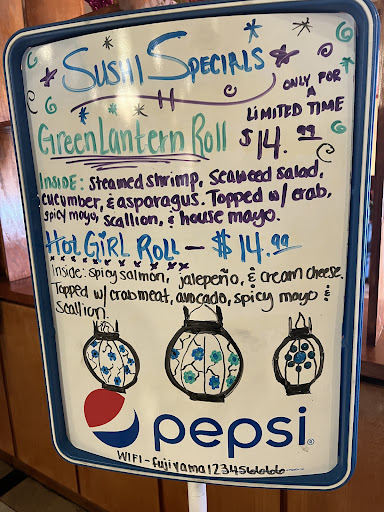 SUSHI SPECIALS
ONLY FOR
A
LIMITED TIME
Green Lantern Roll $14.99
INSIDE: Steamed shrimp, seaweed salad,
cucumber, & asparagus. Topped w/ crab,
spicy mayo, scallion, & house mayo.
HOt GiRL ROLL - $14.99
Inside: spicy salmon, jalepeño, & cream cheese.
Topped w/ crabmeat, avocado, spicy mayo &
scallion.
pepsi®
WIFI - fujiyama123456666